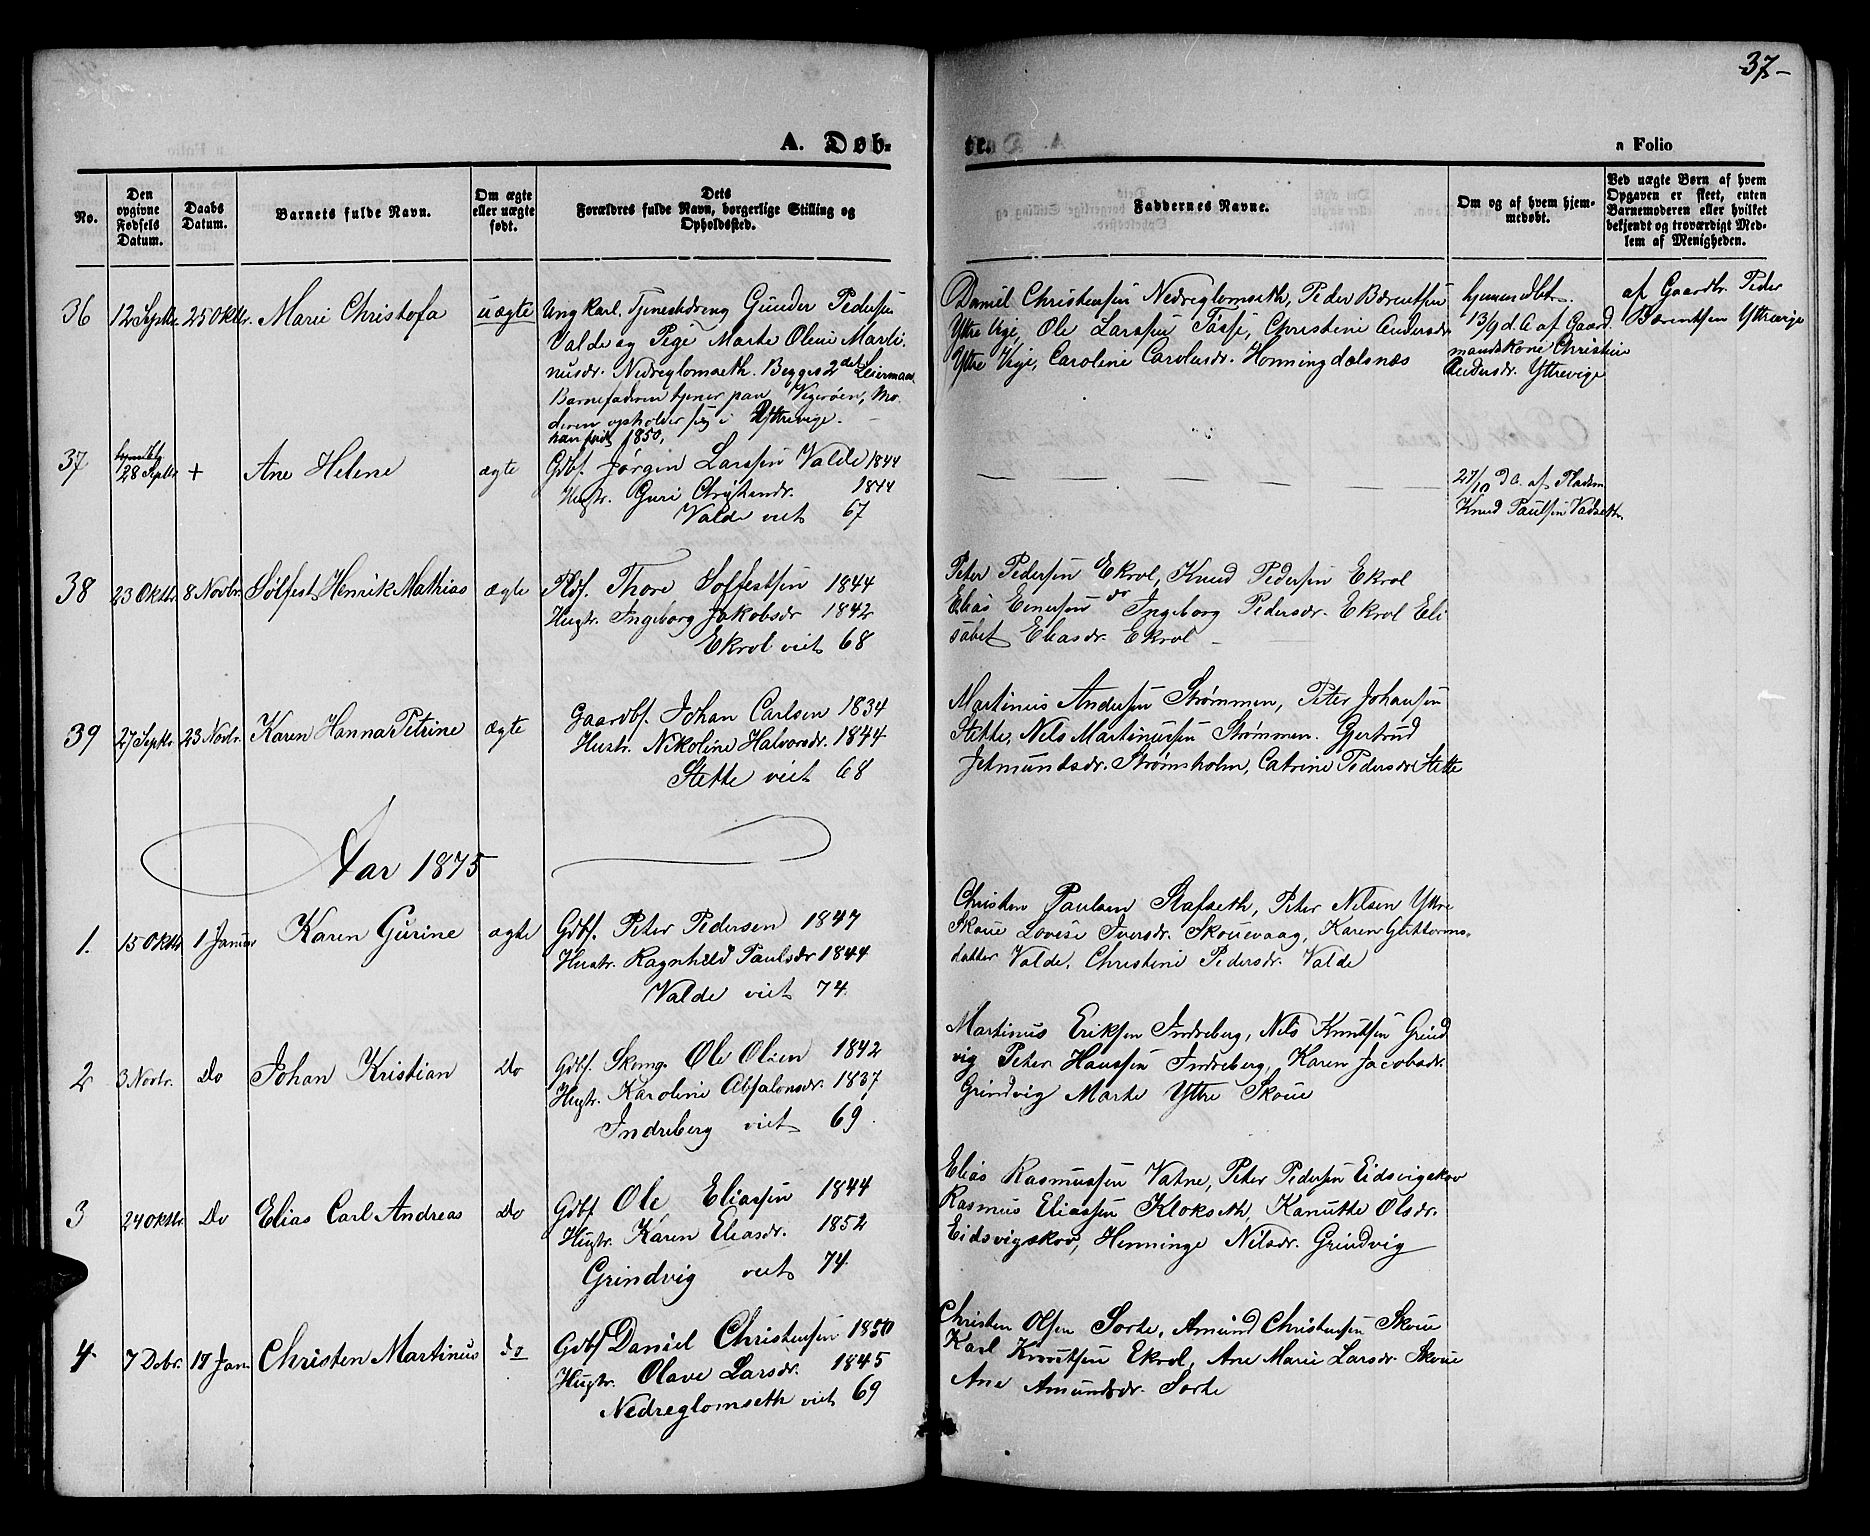 37-
A. Døb-
te.
n Folio
No.
Den opgivne Fødsels Datum.
Daabs Datum.
Barnets fulde Navn.
Om ægte eller uægte født.
Dets Forældres fulde Navn, borgerlige Stilling og Opholdssted.
Faddernes Navne.
Om og af hvem hjem-medøbt.
Ved uægte Børn af hvem Opgaven er skeet, enten Barnemoderen eller hvilket bekjendt og troværdigt Med-lem af Menigheden.
36 12 Septbr. 25 Oktbr. Marie Christofa uægte
Ung karl, Tjenestedreng Gunder Pedersen
Valde og Pige Marte Oline Marti-
nusdr. Nedreglomseth. Begges 2det Leiermaal
Barnefaderen tjener paa Vigerøen, Mo-
deren opholder sig i Yttrevige.
han født 1850,
Daniel Christensen Nedreglomseth, Peder Bærentsen
Yttre Vige, Ole Larssen Tasse, Christine Andersdr.
Yttre Vige, Caroline Carolusdr. Honningdalsnæs
hjemmedbt.
13/9 d. A af Gaard
mandskone Christine
Andersdr. Yttrevige
af Gaardbr. Peder
Bærentsen Yttrevige
37 28 Septbr + Ane Helene ægte
Gdbf. Jørgen Larssen Valde 1844
Hustr. Guri Christensdr. 1844
Valde viet 67
27/10 d A. af Pladsm
Knud Paulsen Vadseth.
38 23 Oktbr. 8 Novbr. Sølfest Henrik Mathias ægte
Pldf. Thore Solfestsen 1844
Hustr. Ingeborg Jakobsdr 1842
Ekrol viet 68
Peter Pedersen Ekrol, Knud Pedersen Ekrol
Elias Einersen do Ingeborg Pedersdr. Ekrol Eli
sabet Eliasdr. Ekrol
39 27 Septbr. 23 Novbr. Karen Hanna Petrine ægte
Gaardbf. Johan Carlsen 1834
Hustr. Nikoline Halvorsdr. 1844
Stette viet 68
Martinus Andersen Strømmen, Peter Johansen
Stette, Nils Martinussen Strømmen. Gjertrud
Jetmundsdr. Strømsholm, Catrine Pedersdr Stette
Aar 1875
1. 15 Oktbr 1 Januar Karen Gurine ægte
Gdbf. Peter Pedersen 1847
Hustr. Ragnhild Paulsdr 1844
Valde viet 74.
Christen Paulsen Stafseth, Peter Nilsen Yttre
Skoue Lovise Iversdr. Skouevaag, Karen Guttorms-
datter Valde, Christine Pedersdr. Valde
2 3. Novbr. Do Johan Kristian Do
Gdbf. Skomg. Ole Olsen 1842
Hustr. Karoline Absalonsdr. 1837
Indreberg viet 69.
Martinus Eriksen Indreberg, Nils Knutsen Grind
vig Peter Hanssen Indreberg, Karen Jacobsdr
Grindvig Marte Yttre Skoue
3 24 Oktbr. Do Elias Carl Andreas Do
Gdbf Ole Eliassen 1844
Hustr. Karen Eliasdr. 1852
Grindvig viet 74.
Elias Rasmussen Vatne, Peter Pedersen Eidsvigskov
Rasmus Eliassen Klokseth, Kanutte Olsdr.
Eidsvigskov, Henninge Nilsdr. Grindvig
4. 7 Debr. 17 Jan Christen Martinus do
Gdbf Daniel Christensen 1850
Hustr. Olave Larsdr. 1845
Nedreglomseth viet 69
Christen Olsen Sorte, Amund Christensen Skoue
Karl Knutsen Ekrol, Ane Marie Larsdr. Skoue
Ane Amundsdr. Sorte